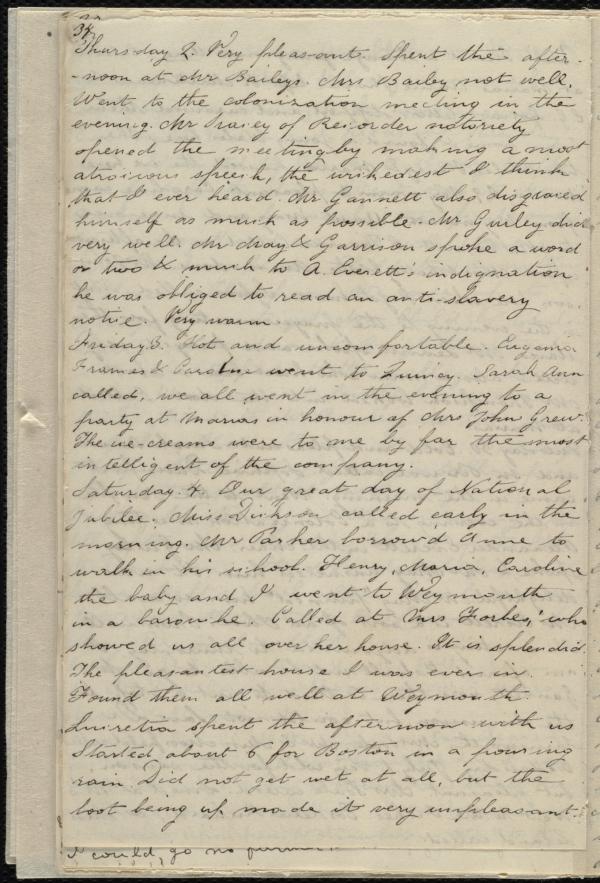 34
Thursday 2. Very pleasant. Spent the after-
-noon at Mr Baileys. Mrs Bailey not well.
Went to the colonization meeting in the
evening. Mr Tracey of Recorder notoriety
opened the meeting by making a most
atrocious speech, the wickedest I think
that I ever heard. Mr Gannett also disgraced
himself as much as possible. Mr Gurley did
very well. Mr May & Garrison spoke a word
or two & much to A. Everett's indignation
he was obliged to read an anti-slavery
notice. Very warm.
Friday 3. Hot and uncomfortable. Eugenia
Frances & Caroline went to Quincy. Sarah Ann
called, we all went in the evening to a
party at Marias in honour of Mrs John Grew.
The ice-creams were to me by far the most
intelligent of the company.
Saturday. 4. Our great day of National
Jubilee. Miss Dickson called early in the
morning. Mr Parker borrow'd Anne to
walk in his school. Henry, Maria, Caroline
the baby and I went to Weymouth
in a barouche. Called at Mrs Forbes' who
showed us all over her house. It is splendid.
The pleasantest house I was ever in.
Found them all well at Weymouth.
Lucretia spent the afternoon with us
Started about 6 for Boston in a pouring
rain. Did not get wet at all, but the
boot being up made it very unpleasant.
I could go no